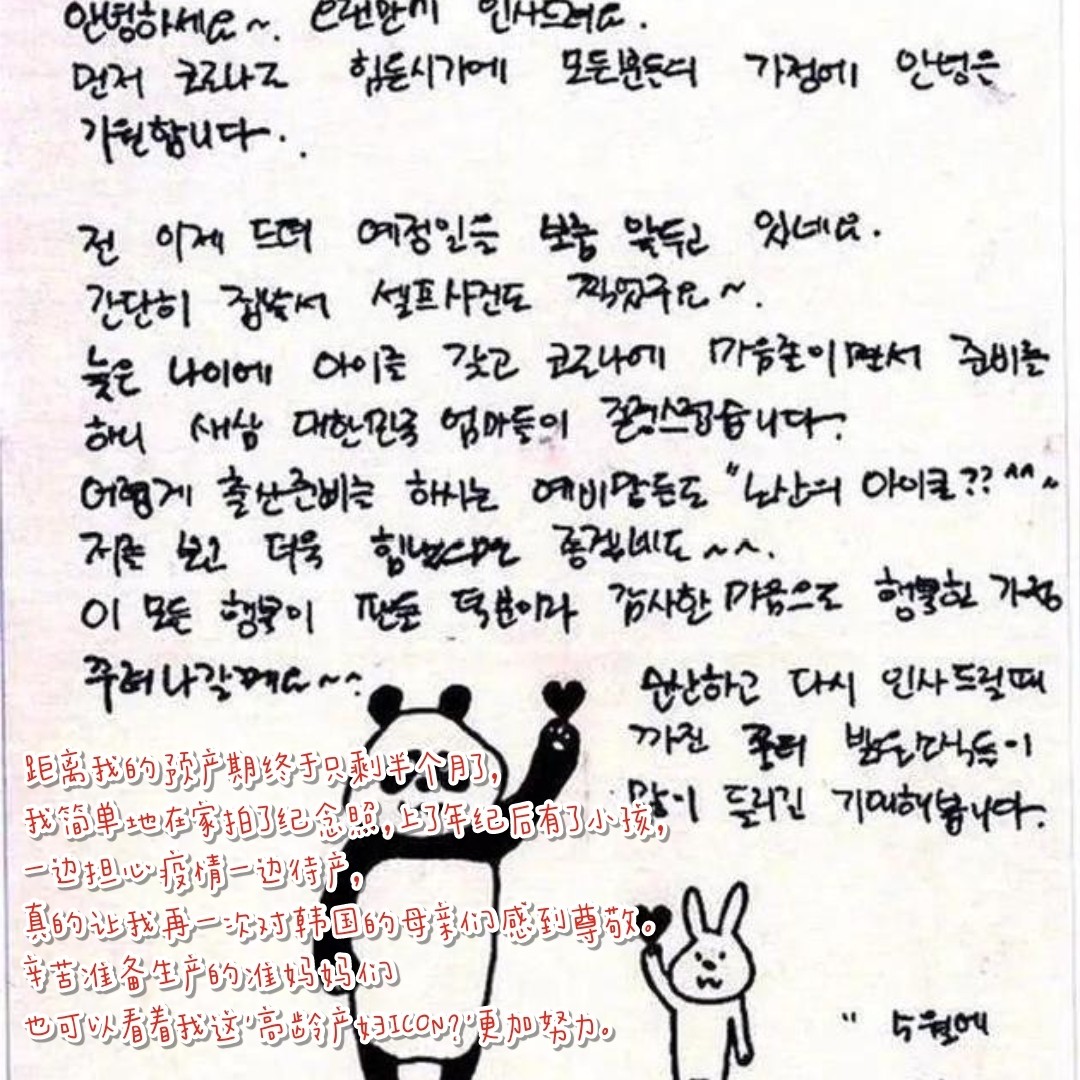 안녕하세요~. 오랜만에 인사드려요.
먼저 코로나로 힘든시기에 모든분들의 가정에 안녕을
기원합니다..
전 이제 드뎌 예정일을 보름 앞두고 있네요.
간단히 집에서 셀프사진도 찍었구요~.
늦은 나이에 아이를 갖고 코로나에 마음졸이면서 준비를
하니 새삼 대한민국 엄마들이 존경스럽습니다.
어렵게 출산준비를 하시는 예비맘들도 "노산의 아이콘?? ^^~
저를 보고 더욱 힘냈으면 좋겠네요~~.
이 모든 행복이 팬분들 덕분이라 감사한 마음으로 행복한 가정
꾸려나갈께요~~.
순산하고 다시 인사드릴때
까진 우리 밝은소식들이
많이 들리길 기대해봅니다.
距离我的预产期终于只剩半个月了,
我简单地在家拍了纪念照,上了年纪后有了小孩,
一边担心疫情一边待产,
真的让我再一次对韩国的母亲们感到尊敬。
辛苦准备生产的准妈妈们
也可以看着我这'高龄产妇ICON?'更加努力。
" 5월에